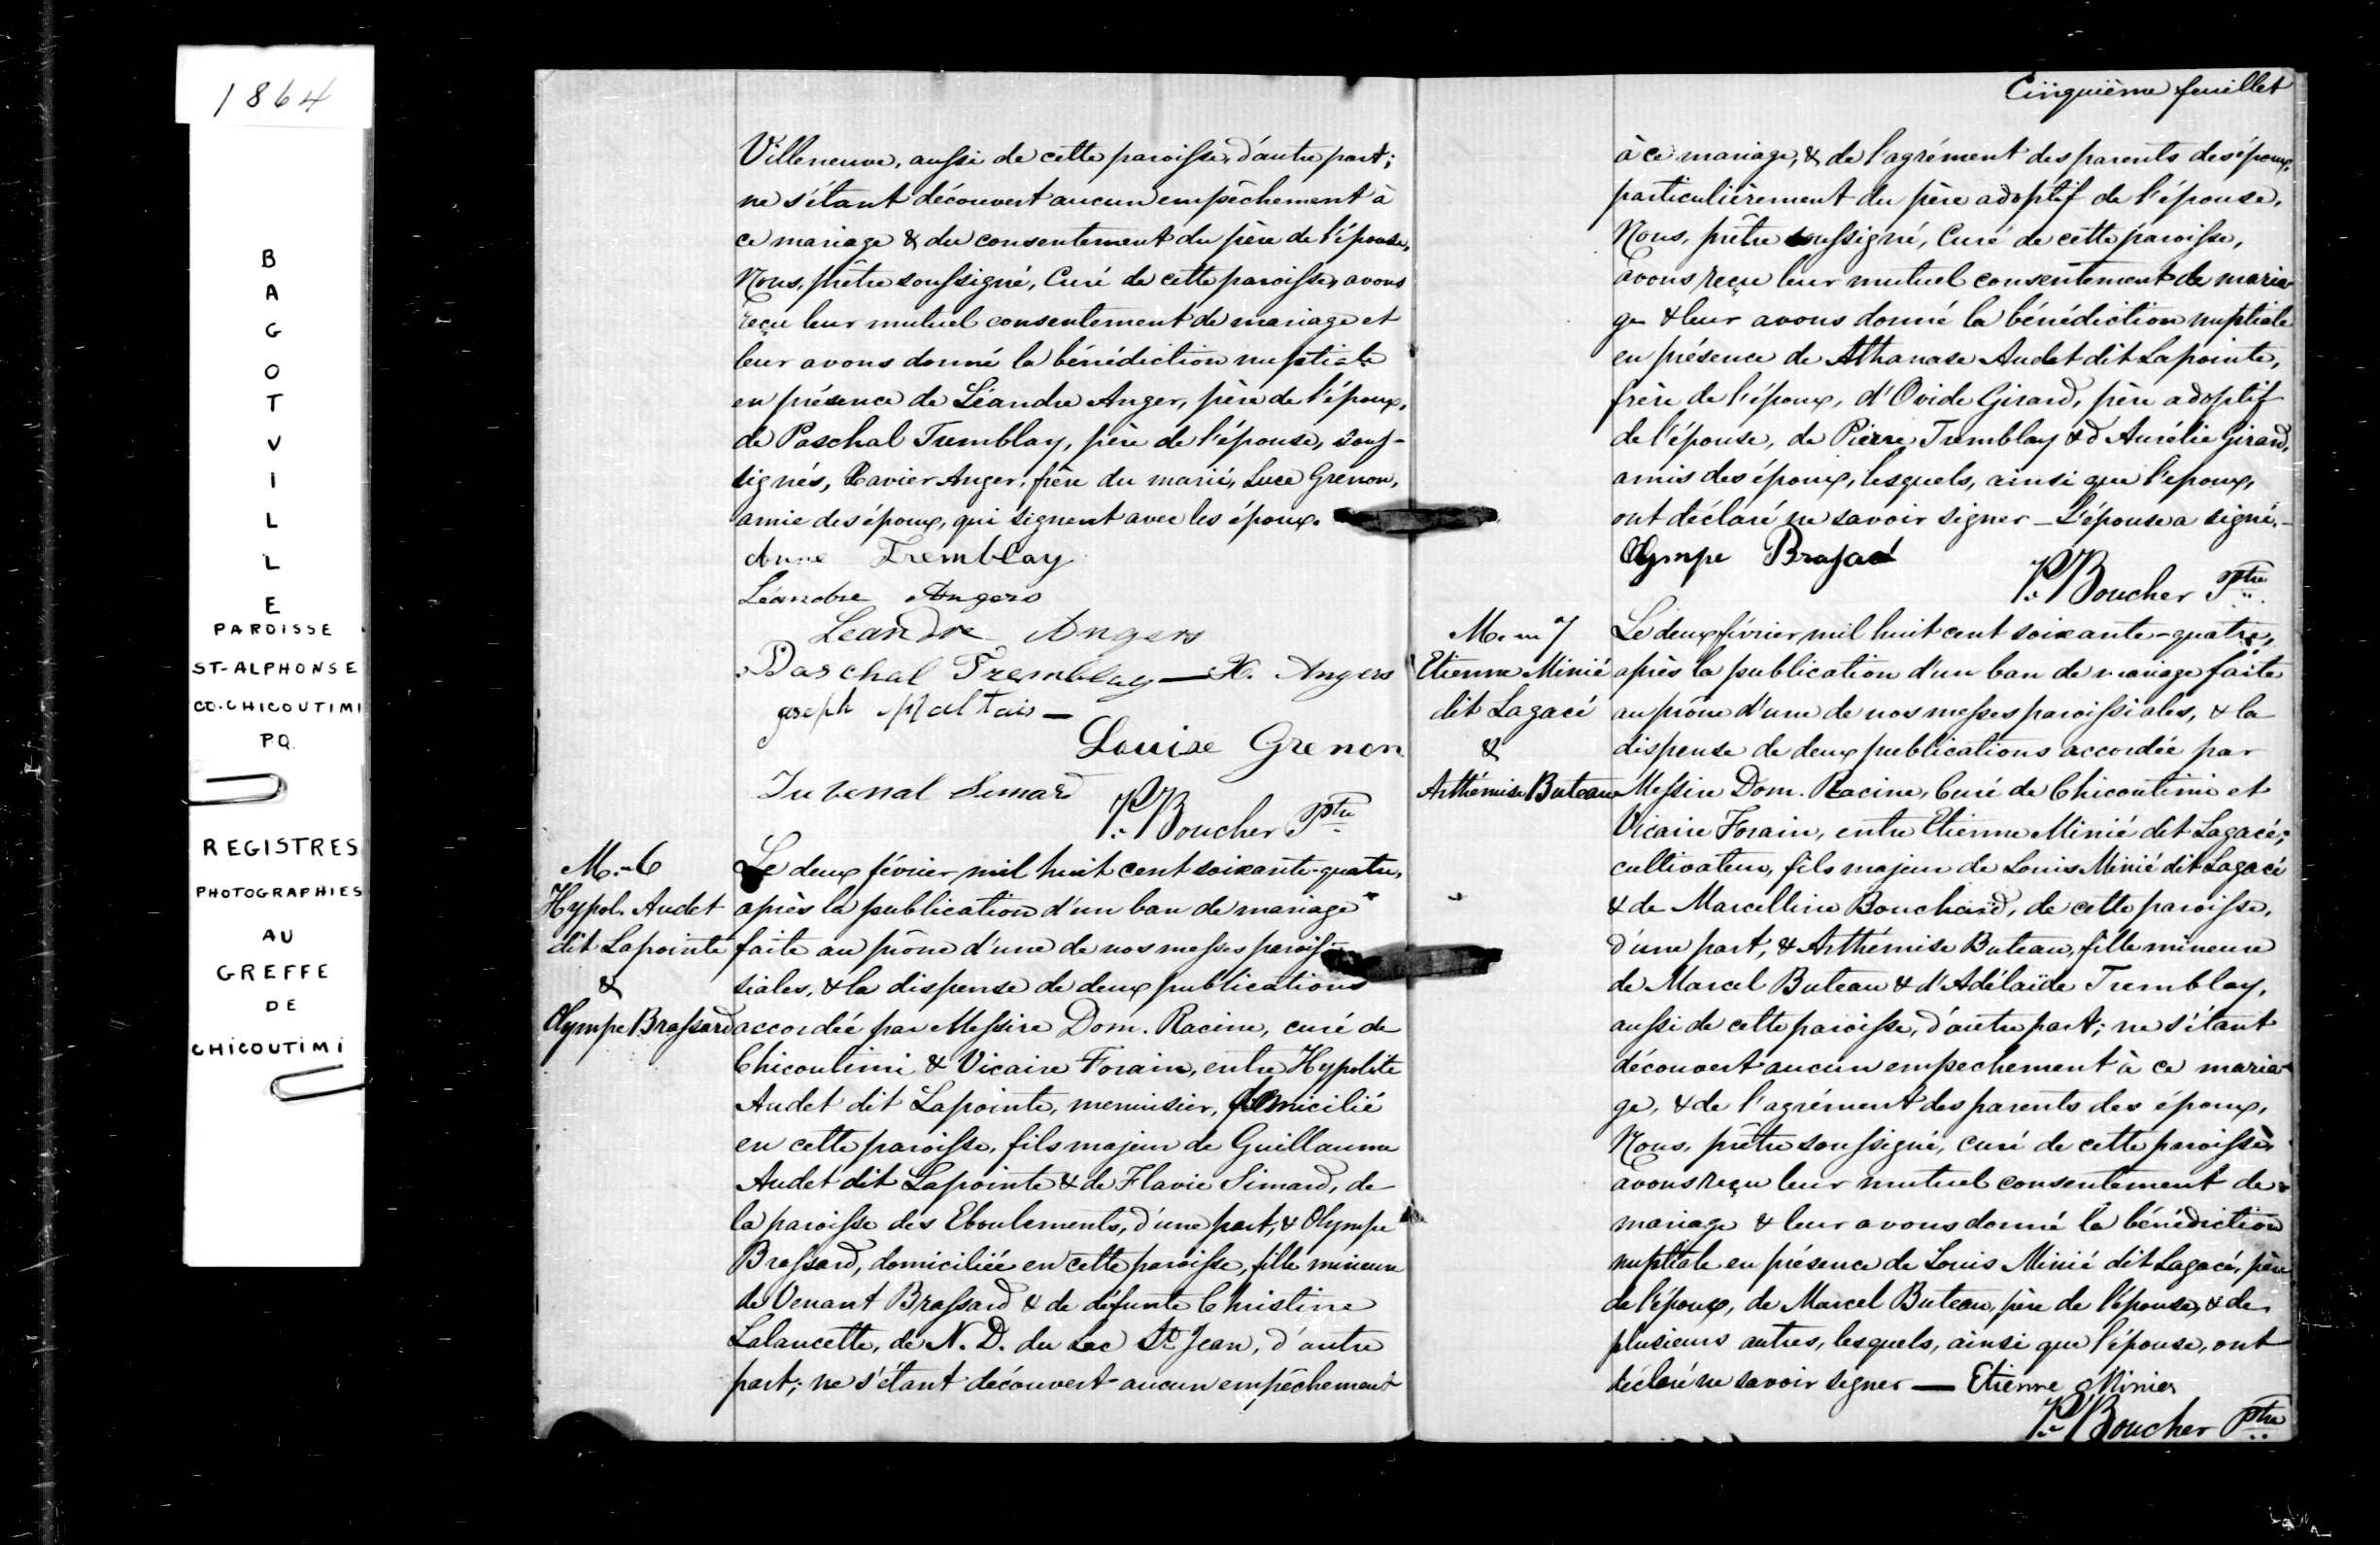 1864
B
A
G
O
T
V
I
L
L
E
PAROISSE
ST-ALPHONSE
CO. CHICOUTIMI
P.Q.
REGISTRES
PHOTOGRAPHIES
AU
GREFFE
DE
CHICOUTIMI
Villeneuve, aussi de cette paroisse, d'autre part;
ne s'étant découvert aucun empêchement à
ce mariage & du consentement du père de l'épouse,
Nous, prêtre soussigné, Curé de cette paroisse, avons
reçu leur mutuel consentement de mariage et
leur avons donné la bénédiction nuptiale
en présence de Léandre Anger, père de l'époux,
de Paschal Tremblay, père de l'épouse, sous-
signés, Xavier Anger, frère du marié, Luce Grenon,
amie des époux, qui signent avec les époux.
Anne Tremblay
Léandre Angers
Leandre Angers
Paschal Tremblay — X. Angers
joseph Maltais —
Louise Grenon
Juvenal Simard
P. Boucher Ptre
M.-6
Hypol. Audet
dit Lapointe
&
Olympe Brassard
Le deux février mil huit cent soixante-quatre,
après la publication d'un ban de mariage
faite au prône d'une de nos messes parois-
siales, & la dispense de deux publications
accordée par Messire Dom. Racine, curé de
Chicoutimi & Vicaire Forain, entre Hypolite
Audet dit Lapointe, menuisier, domicilié
en cette paroisse, fils majeur de Guillaume
Audet dit Lapointe & de Flavie Simard, de
la paroisse des Eboulements, d'une part, & Olympe
Brassard, domiciliée en cette paroisse, fille mineure
de Venant Brassard & de défunte Christine
Lalancette, de N. D. du Lac St Jean, d'autre
part; ne s'étant découvert aucun empêchement
Cinquième feuillet
à ce mariage, & de l'agrément des parents des époux,
particulièrement du père adoptif de l'épouse,
Nous, prêtre soussigné, Curé de cette paroisse,
avons reçu leur mutuel consentement de maria-
ge & leur avons donné la bénédiction nuptiale
en présence de Athanase Audet dit Lapointe,
frère de l'époux, d'Ovide Girard, père adoptif
de l'épouse, de Pierre Tremblay & d'Aurélie Girard,
amis des époux, lesquels, ainsi que l'epoux,
ont déclaré ne savoir signer — L'épouse a signé. —
Olympe
P. Boucher Ptre
M. — 7
Etienne Minié
dit Lagacé
&
Arthémise Buteau
Le deux février mil huit cent soixante-quatre,
après la publication d'un ban de mariage faite
au prône d'une de nos messes paroissiales, & la
dispense de deux publications accordée par
Messire Dom. Racine, Curé de Chicoutimi et
Vicaire Forain, entre Etienne Minié dit Lagacé,
cultivateur, fils majeur de Louis Minié dit Lagacé
& de Marcelline Bouchard, de cette paroisse,
d'une part, & Arthémise Buteau, fille mineure
de Marcel Buteau & d'Adélaïde Tremblay,
aussi de cette paroisse, d'autre part; ne s'étant
découvert aucun empechement à ce maria-
ge, & de l'agrément des parents des époux,
Nous, prêtre soussigné, curé de cette paroisse,
avons reçu leur mutuel consentement de
mariage & leur avons donné la bénédiction
nuptiale en présence de Louis Minié dit Lagacé, père
de l'époux, de Marcel Buteau, père de l'épouse, & de
plusieurs autres, lesquels, ainsi que l'épouse, ont
déclaré ne savoir signer — Etienne Minier
P. Boucher Ptre